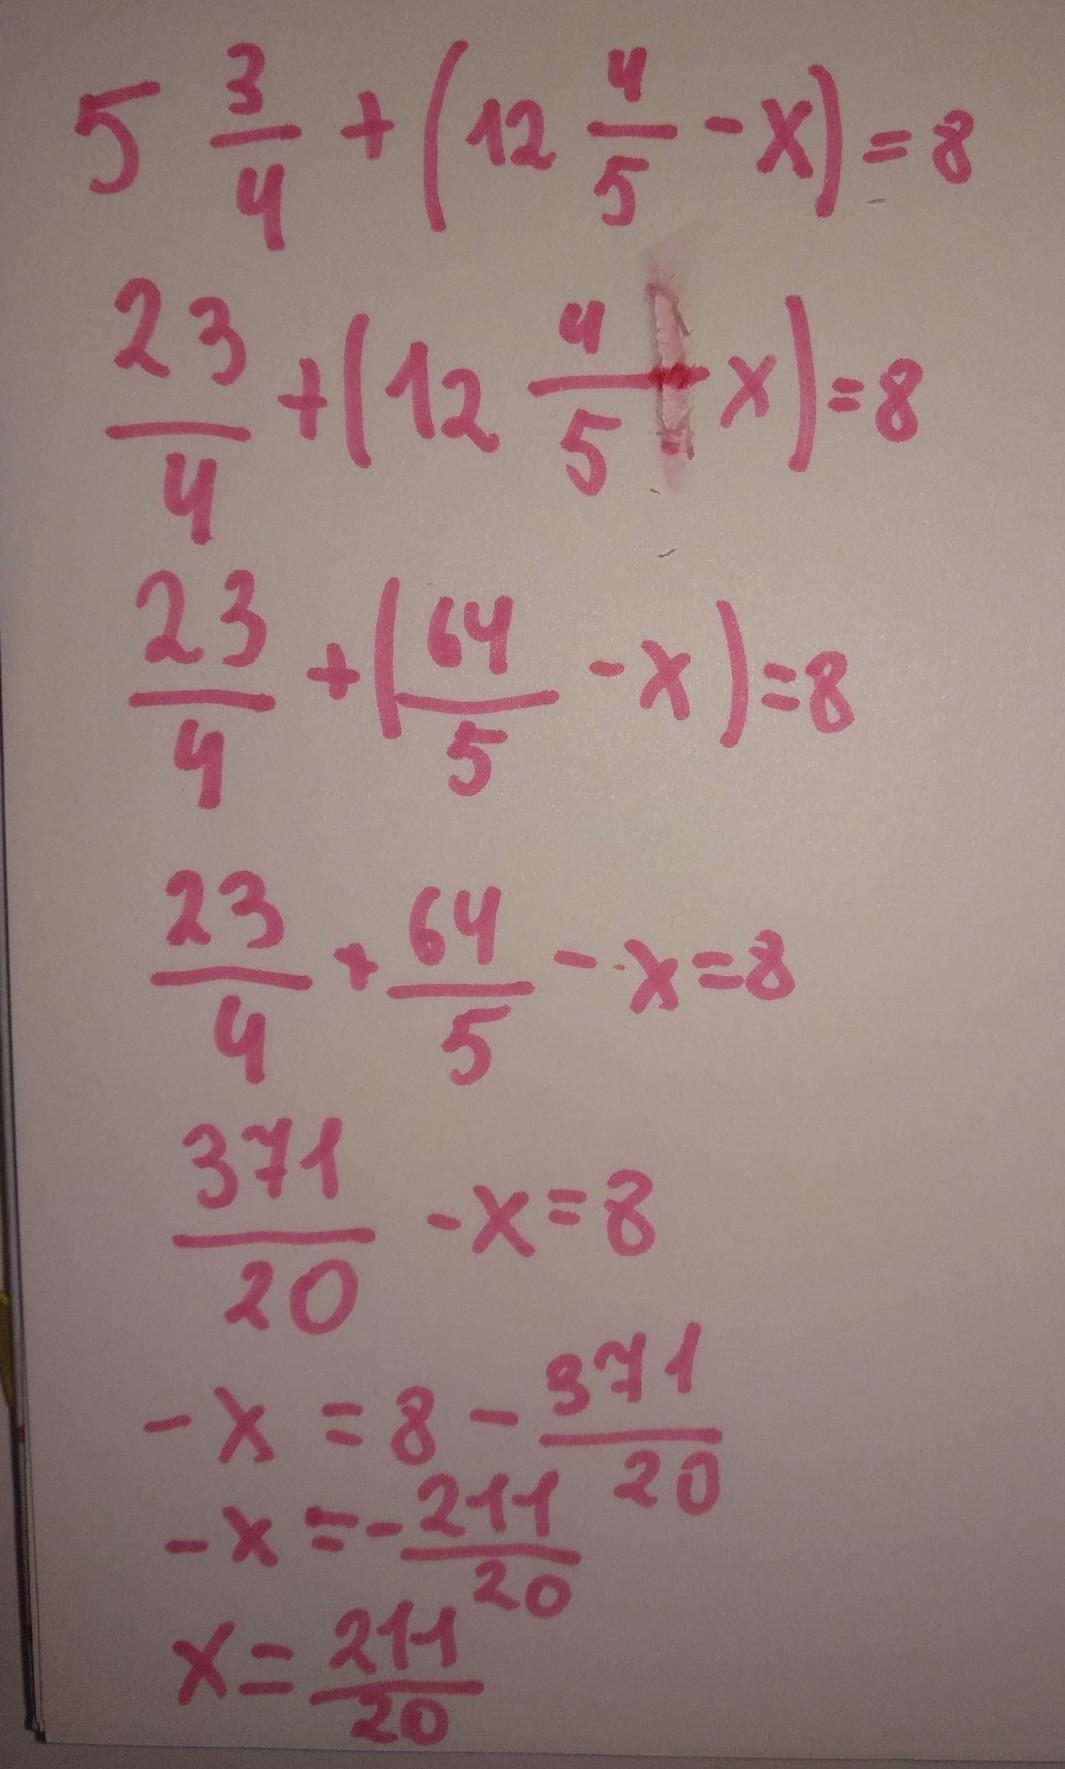 5 3/4 + (12 4/5 - x) = 8
23/4 + (12 4/5 - x) = 8
23/4 + (64/5 - x) = 8
23/4 + 64/5 - x = 8
371/20 - x = 8
-x = 8 - 371/20
-x = -211/20
x = 211/20